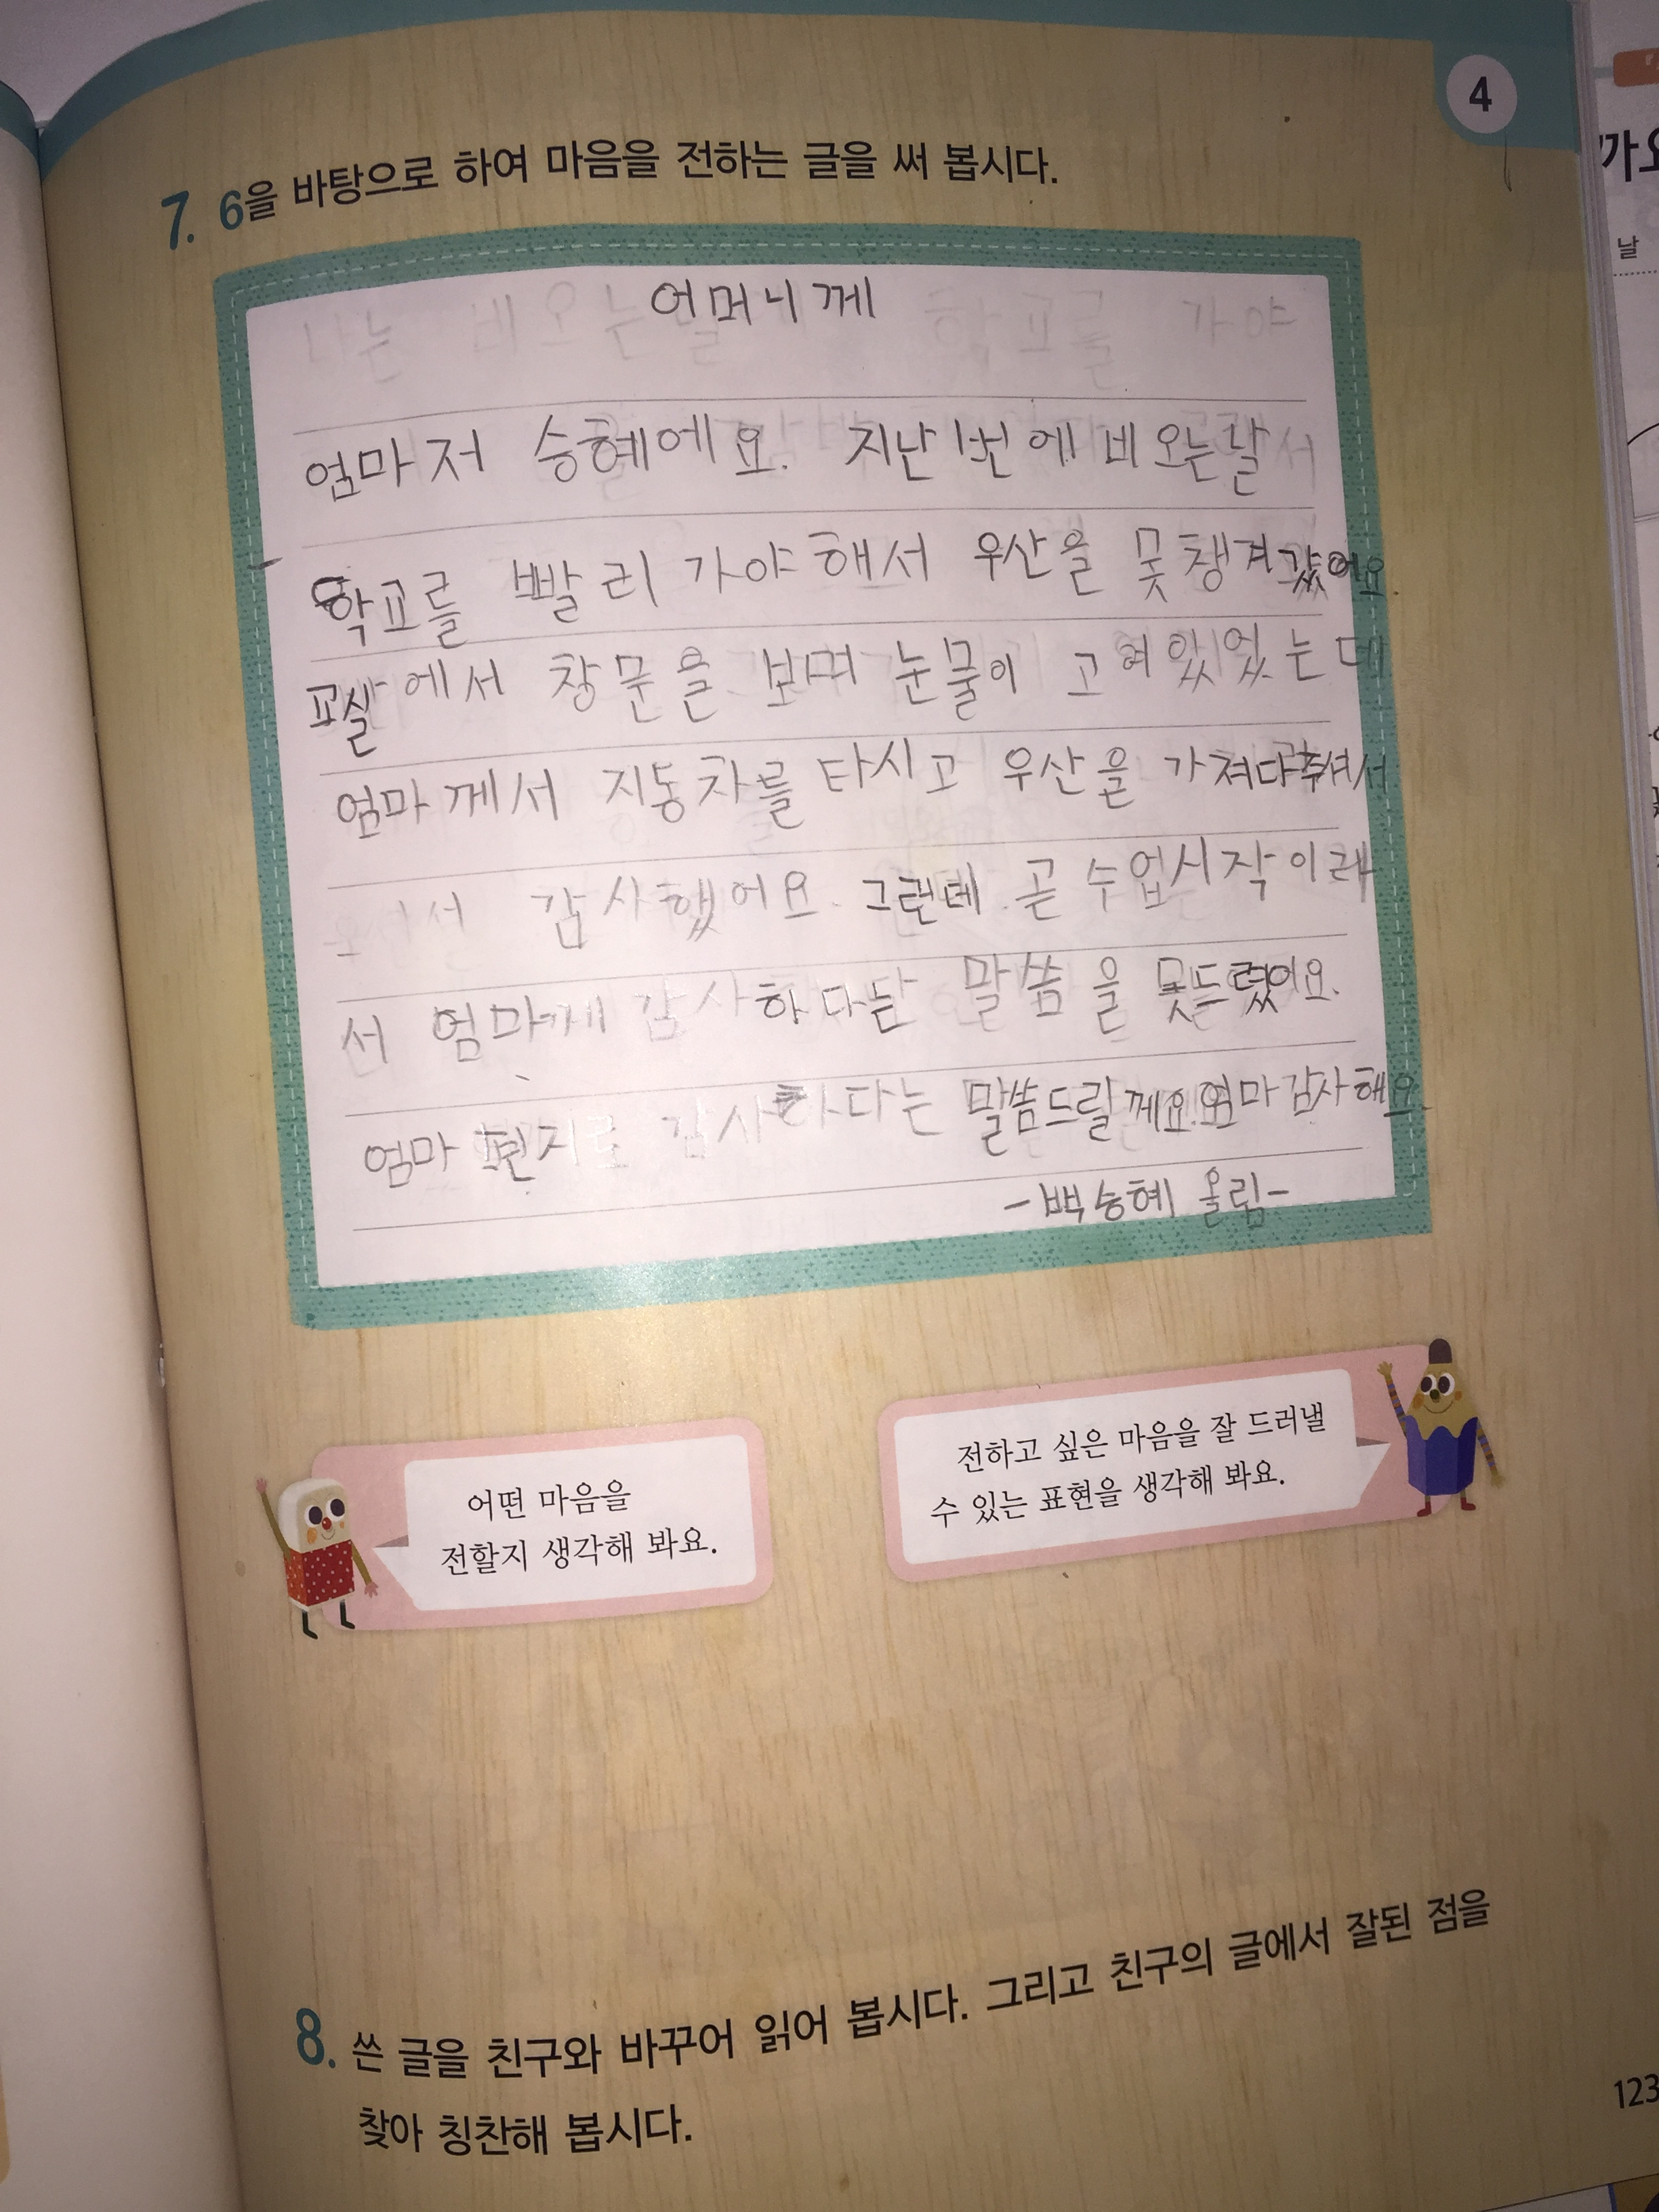 4
7. 6을 바탕으로 하여 마음을 전하는 글을 써 봅시다.
어머니께
엄마저 승혜에요. 지난번에 비오는날
학교를 빨리 가야해서 우산을 못챙겨갔어요.
교실에서 창문을 보며 눈물이 고여있었는데
엄마께서 자동차를 타시고 우산을 가져다주셔서
감사했어요. 그런데 곧 수업시작이래
서 엄마께 감사하다는 말씀을 못드렸어요.
엄마 편지로 감사하다는 말씀드릴께요.엄마감사해요.
-백승혜 올림-
어떤 마음을
전할지 생각해 봐요.
전하고 싶은 마음을 잘 드러낼
수 있는 표현을 생각해 봐요.
8. 쓴 글을 친구와 바꾸어 읽어 봅시다. 그리고 친구의 글에서 잘된 점을
찾아 칭찬해 봅시다.
123
까요
날